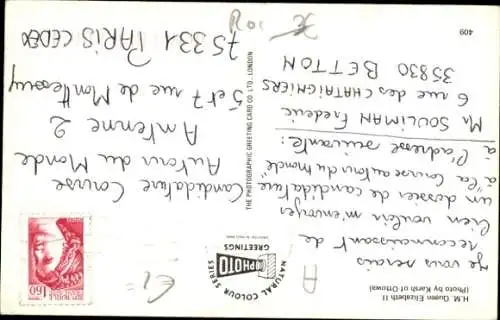 H.M. Queen Elizabeth II
(Photo by Karsh of Ottowa)
409
Je vous serais
reconnaissant de
bien vouloir m'envoyer
un dossier de candidature
à "la Course autour du monde"
à l'adresse suivante :
Mr SOULIMAN Frédéric
6 rue des CHATAIGNIERS
35830 BETTON
NATURAL COLOUR SERIES
PHOTO
GREETINGS
THE PHOTOGRAPHIC GREETING CARD CO. LTD., LONDON
Candidature Course
Autour du Monde
Antenne 2
5 et 7 rue de Montessuy
75331 PARIS CEDEX
1,60
A